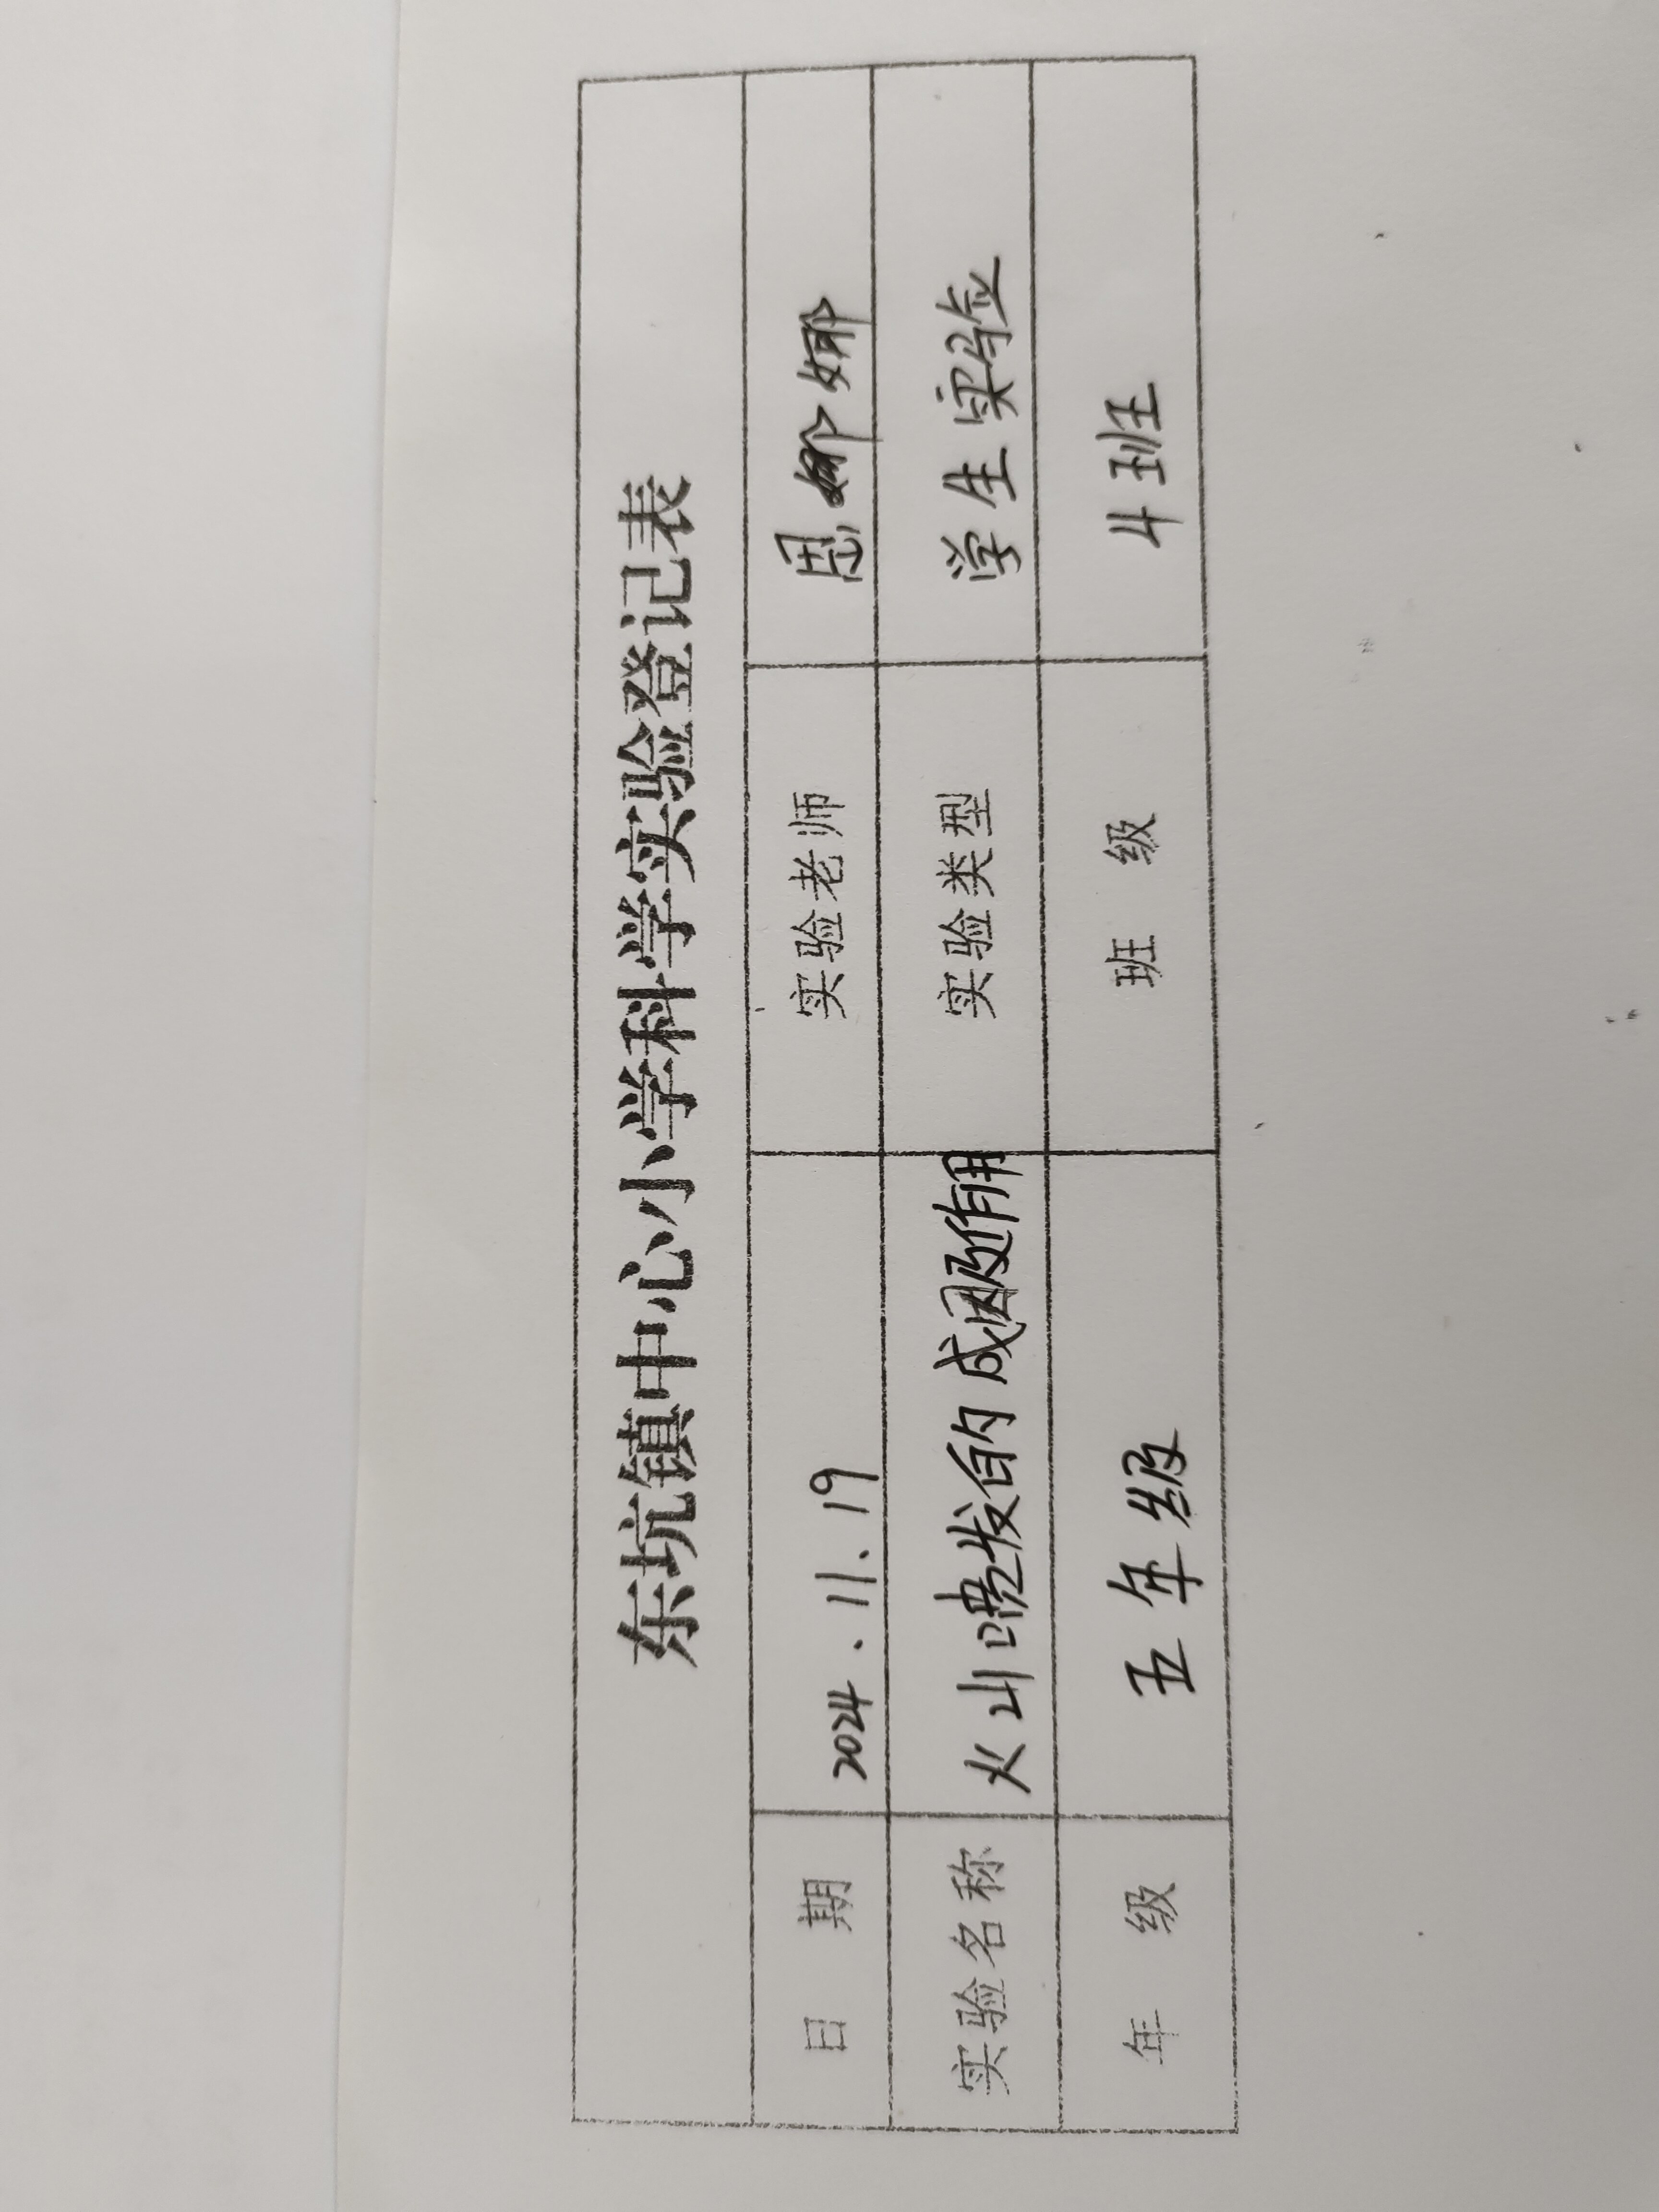 东坑镇中心小学科学实验登记表
日 期 2024.11.19 实验老师 恩娜娜
实验名称 火山喷发的成因及作用 实验类型 学生实验
年 级 五年级 班 级 4班